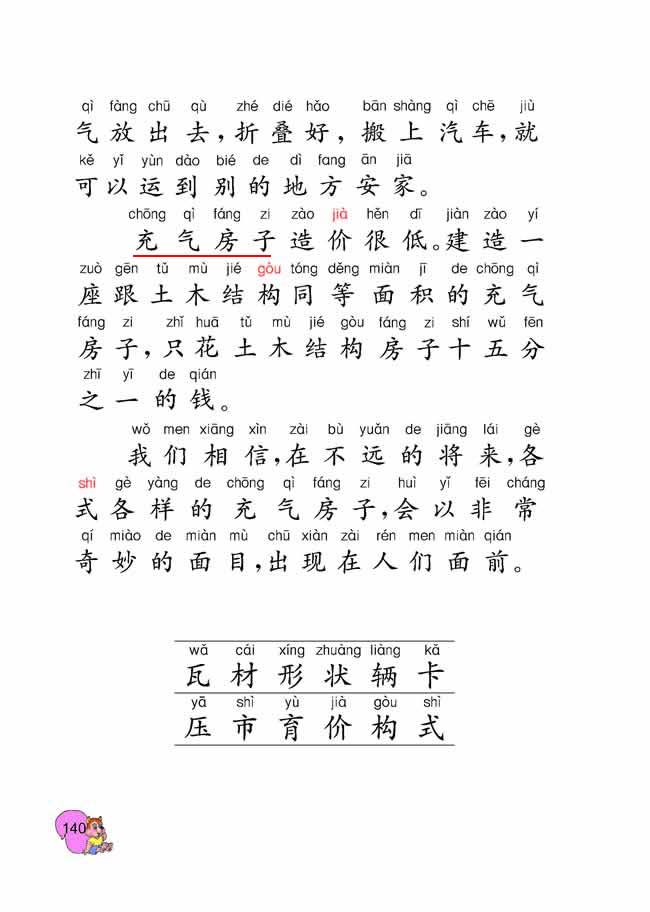 qì fàng chū qù zhé dié hǎo bān shàng qì chē jiù
气放出去，折叠好，搬上汽车，就
kě yǐ yùn dào bié de dì fang ān jiā
可以运到别的地方安家。
chōng qì fáng zi zào jià hěn dī jiàn zào yí
充气房子造价很低。建造一
zuò gēn tǔ mù jié gòu tóng děng miàn jī de chōng qì
座跟土木结构同等面积的充气
fáng zi zhǐ huā tǔ mù jié gòu fáng zi shí wǔ fēn
房子，只花土木结构房子十五分
zhī yī de qián
之一的钱。
wǒ men xiāng xìn zài bù yuǎn de jiāng lái gè
我们相信，在不远的将来，各
shì gè yàng de chōng qì fáng zi huì yǐ fēi cháng
式各样的充气房子，会以非常
qí miào de miàn mù chū xiàn zài rén men miàn qián
奇妙的面目，出现在人们面前。
wǎ cái xíng zhuàng liàng kǎ
瓦材形状辆卡
yā shì yù jià gòu shì
压市育价构式
140